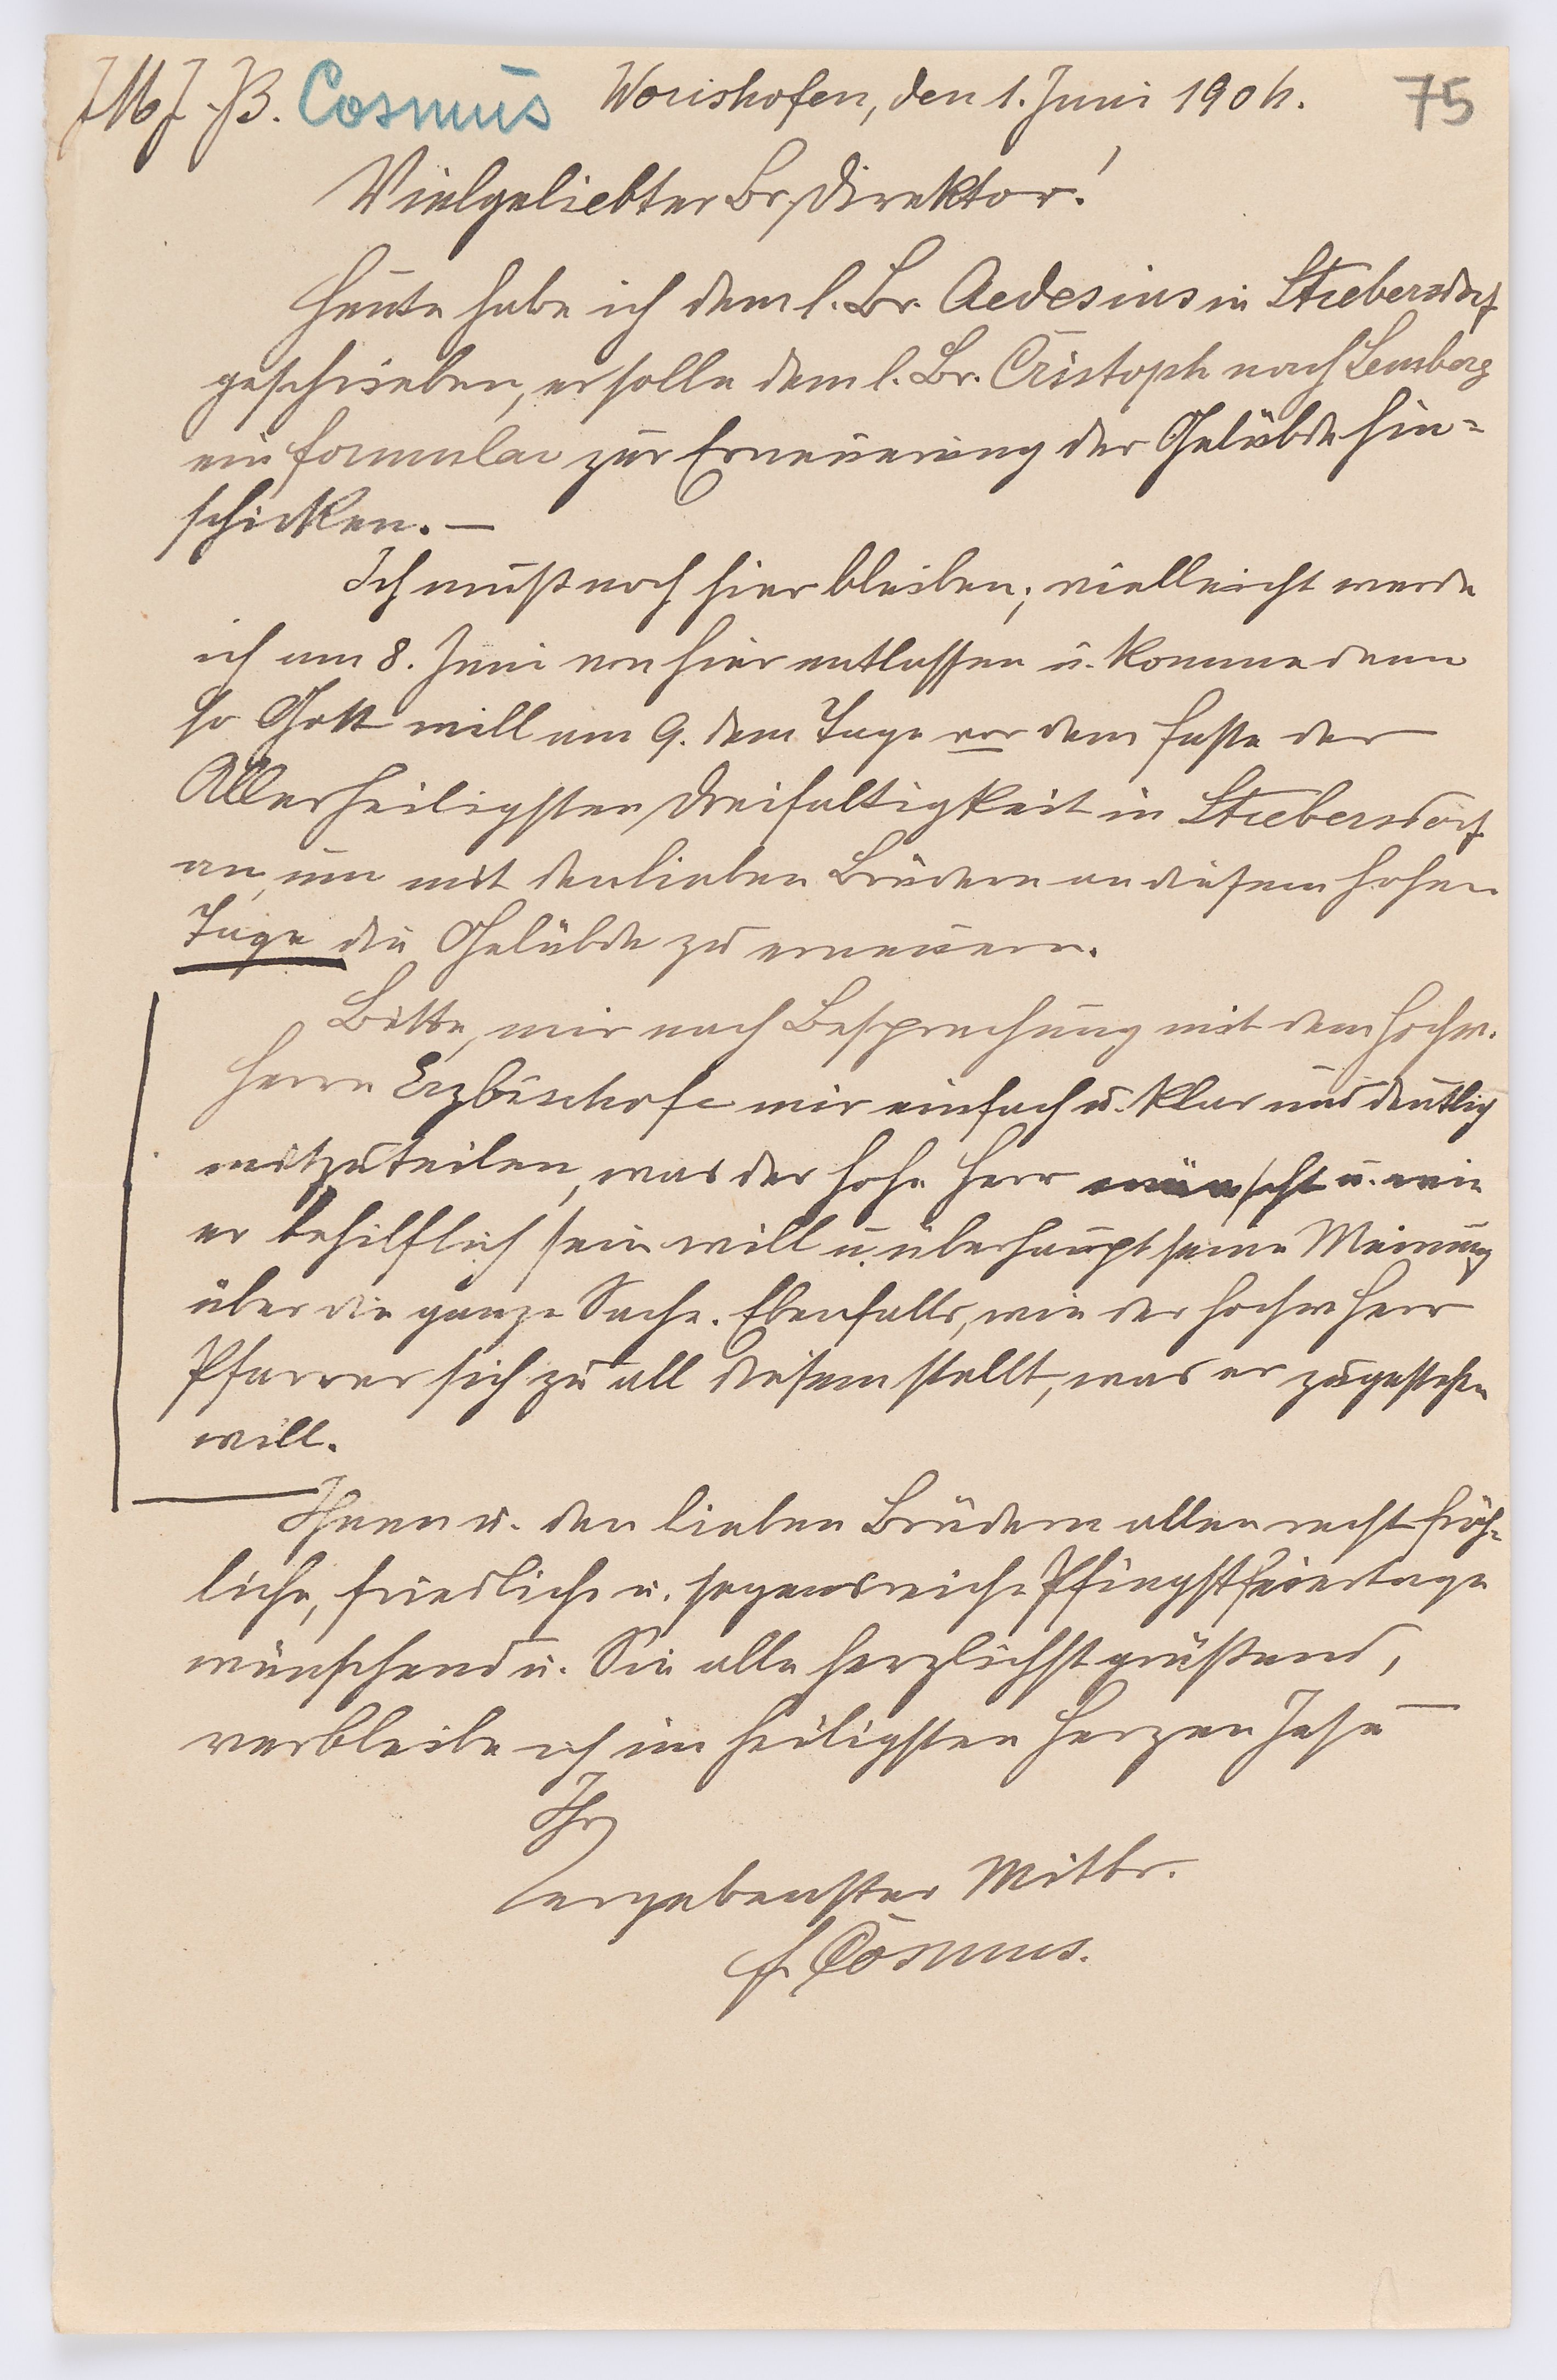 JMJ. B. Cosmus Wörishofen, den 1. Juni 1906. 75
Vielgeliebter Br. Direktor!
Heute habe ich dem l. Br. Aedesius in Strebersdorf
geschrieben, er solle dem l. Br. Cristoph nach Lemberg
ein Formular zur Erneuerung der Gelübde hin=
schicken. —
Ich muß noch hier bleiben; vielleicht werde
ich am 8. Juni von hier entlassen u. komme dann
so Gott will am 9. dem Tage vor dem Feste der
Allerheiligsten Dreifaltigkeit in Strebersdorf
an, um mit den lieben Brüdern an diesem hohen
Tage die Gelübde zu erneuern.
Bitte, mir nach Besprechung mit dem hochw.
Herrn Erzbischofe mir einfach u. klar und deutlich
mitzuteilen, was der hohe Herr wünscht u. wie
er behilflich sein will u. überhaupt seine Meinung
über die ganze Sache. Ebenfalls, wie der hochw Herr
Pfarrer sich zu all diesem stellt, was er zugestehen
will.
Ihnen u. den lieben Brüdern allen recht fröh=
liche, friedliche u. segensreiche Pfingstfeiertage
wünschend u. Sie alle herzlichst grüßend,
verbleibe ich im heiligsten Herzen Jesu —
Ihr
ergebenster Mitbr.
f. Cosmus.